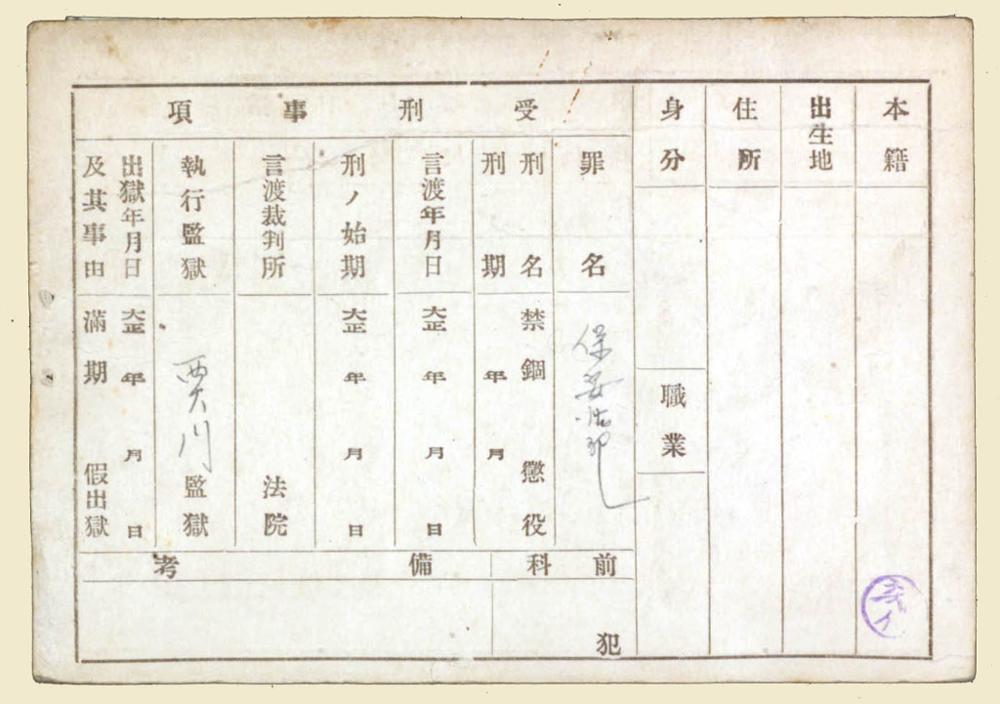 本籍
出生地
住所
身分
職業
受刑事項
罪名
保安法
刑名 禁錮 懲役
刑期 年 月
言渡年月日 大正 年 月 日
刑ノ始期 大正 年 月 日
言渡裁判所 法院
執行監獄 西大門監獄
出獄年月日 大正 年 月 日
及其事由 滿期 假出獄
前科
犯
備考